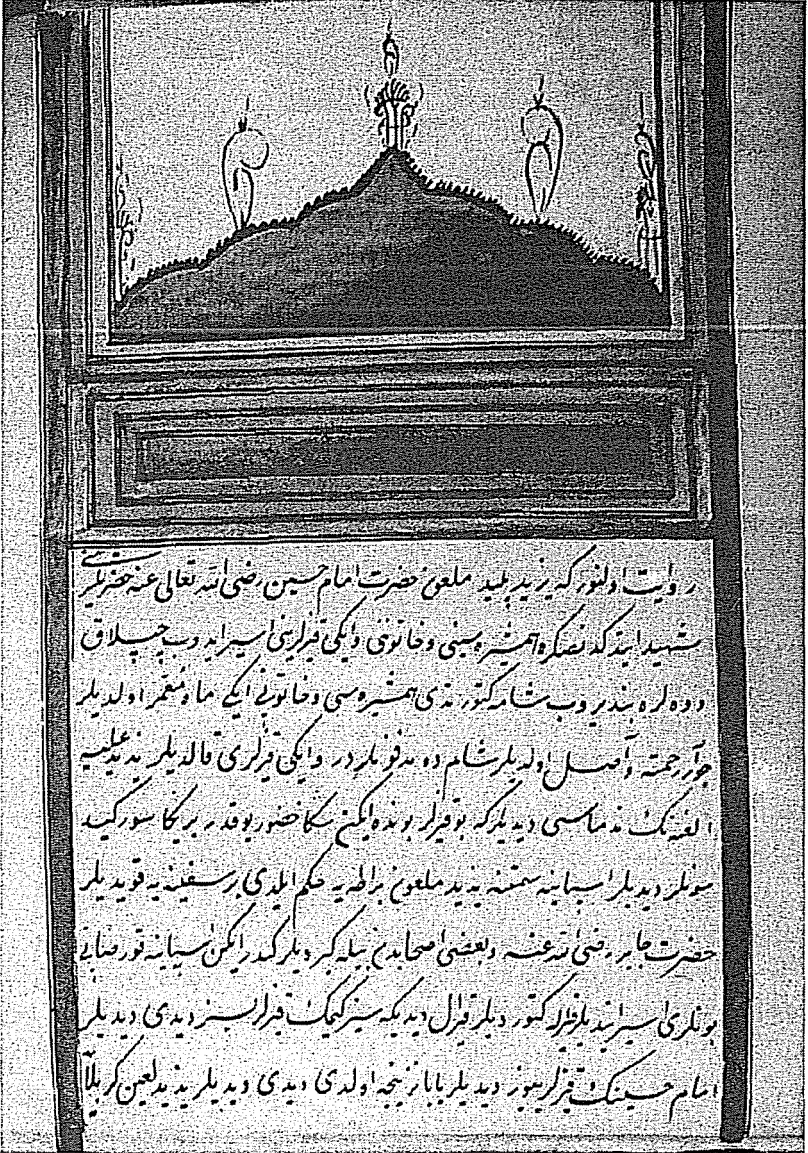 روایت اولنور كه یزید پلید ملعون حضرت امام حسین رضی الله تعالی عنه حضرتلرینی
شهید ایتدكدنصكره همشیره سینی وخاتوننی وایكی قیزلرینی اسیر ایدوب چپلاق
دوه لره بندیروب شامه كتوردی همشیره سی وخاتونی ایكی ماه معمر اولدیلر
جوار رحمته واصل اولدیلر شام ده مدفونلردر وایكی قیزلری قالدیلر یزید علیه
اللعنه نك ندماسی دیدیلركه بو قیزلر بونده ایكن سكا حضور یوقدر بر یكا سوركید
سونلر دیدیلر اسپانیه سمتنه یزید ملعون براطه یه حكم ایلدی بر سفینه یه قویدیلر
حضرت جابر رضی الله عنه وبعضی اصحابدن بیله كیردیلر كیدر ایكن اسپانیه قورصانی
بونلری اسیر ایتدیلر قراله كتوردیلر قرال دیدیكه سیز كیمك قیزلریسز دیدی دیدیلر
امام حسینك قیزلرییوز دیدیلر بابازنیجه اولدی دیدی دیدیلر یزید لعین كربلا